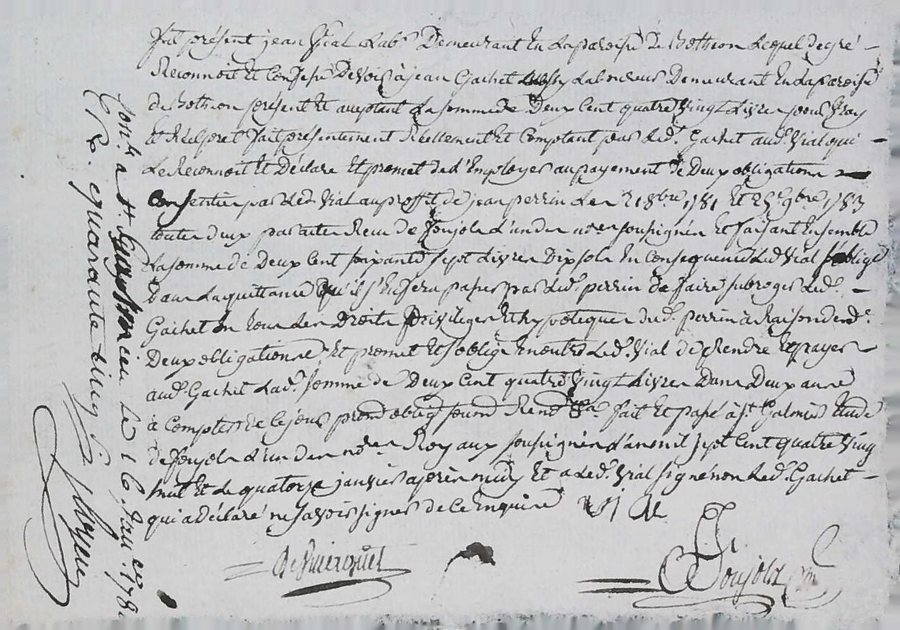 fut présent jean Vial Labr Demeurant En La paroisse De Botheon Lequel De gré
Reconnoit Et Confesse Devoir à jean Gachet Laboureur Demeurant En La paroisse
de Botheon présent Et acceptant La somme de Deux Cent quatre Vingt Livres pour Vray
Et Réel pret fait présentement Réellement Et Comptant par Led. Gachet aud. Vial qui
Le Reconnoit Et Déclare Et promet de L'Employer au payement de Deux obligations
Consenties par Led. Vial au proffit de jean perrin Les 21 8bre 1781 Et 25e 9bre 1783
toutes deux par acte Reçu de Jonjols L'un des nores soussignés Et faisant Ensemble
La somme de Deux Cent soixante sept Livres Dix sols En Conséquence Led. Vial s'oblige
Dans La quittance qu'il s'En fera passer par Led. perrin de faire subroger Led.
Gachet En tous Les Droits Privileges Et hypotheques dud. perrin à Raison desd.
Deux obligations Et promet Et s'oblige En outre Led. Vial de Rendre Et payer
aud. Gachet Lad. somme de Deux Cent quatre Vingt Livres Dans Deux ans
à Compter de Ce jour fait Et passé à St Galmier Etude
de Jonjols L'un des nores Royaux soussignés L'an mil sept Cent quatre Vingt
huit Et Le quatorze janvier après midy Et a Led. Vial signé non Led. Gachet
qui a Déclaré ne savoir signer de Ce Enquis Vial
Jonjols
Conlé à St Le 16 Janer 178
quarante cinq s.